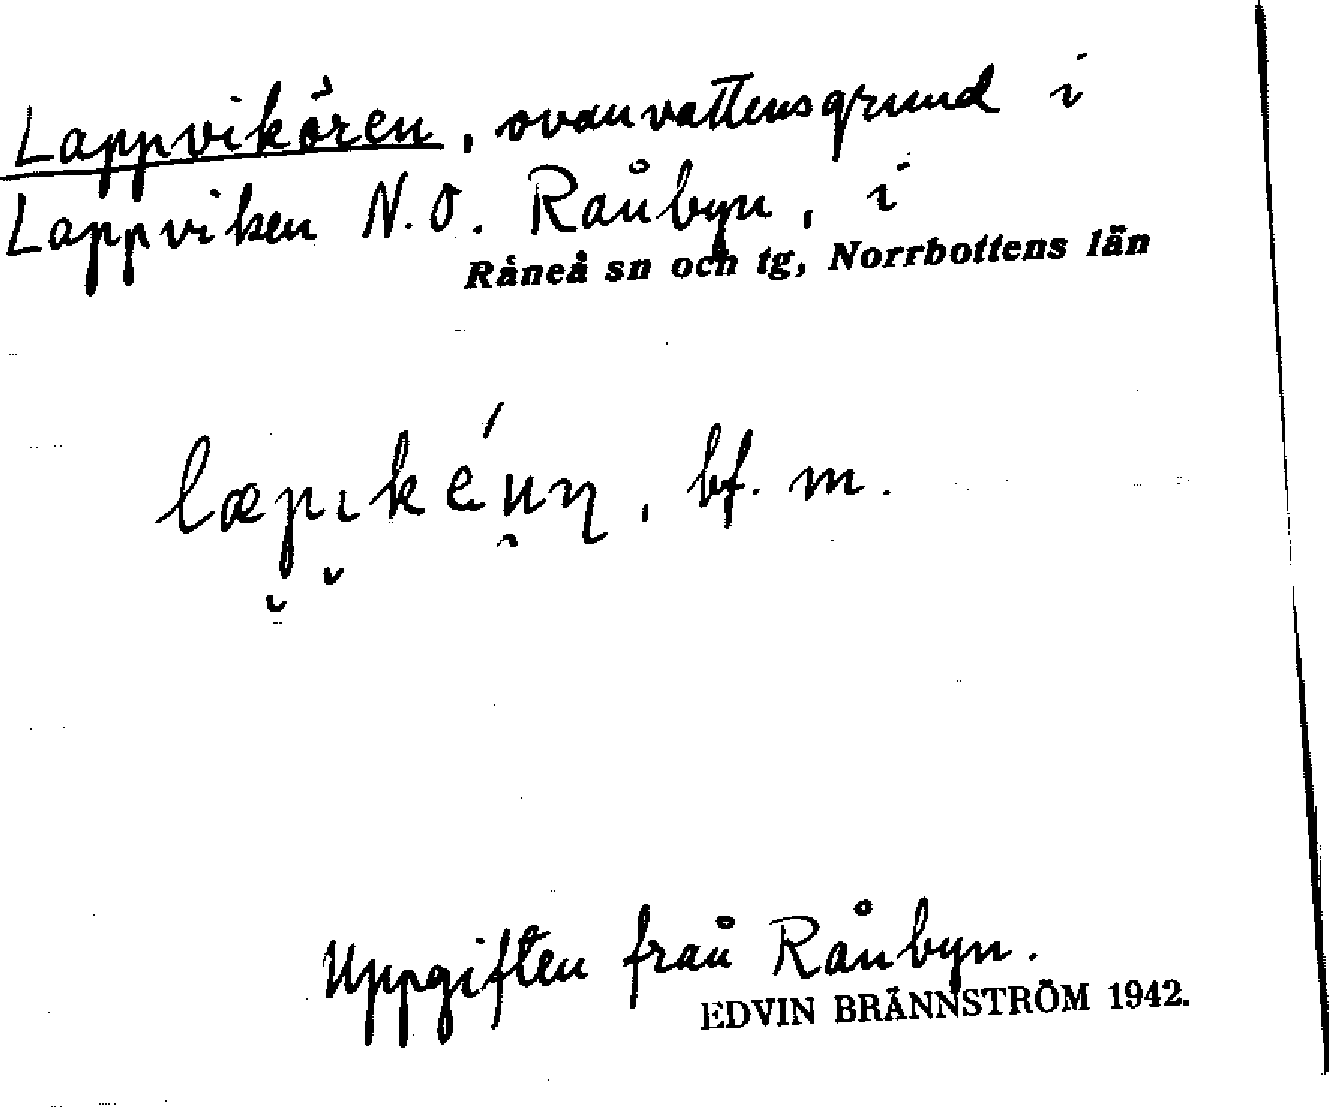 Lappvikören, ovanvattensgrund i
Lappviken N.O. Rånbyn, i
Råneå sn och tg, Norrbottens län
bf. m.
Uppgiften från Rånbyn.
EDVIN BRÄNNSTRÖM 1942.